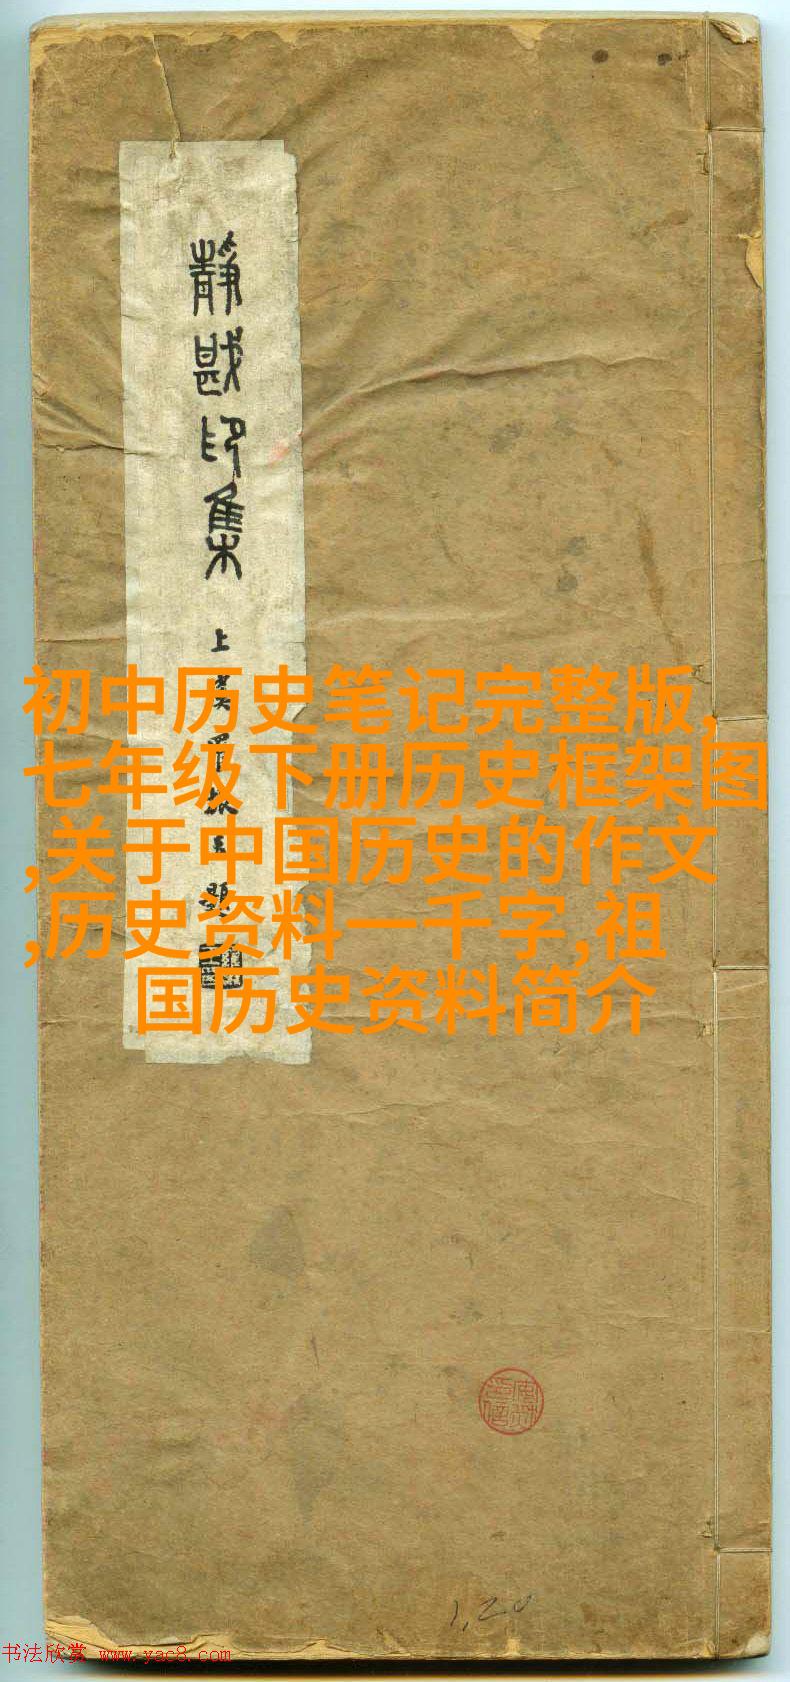 靜戡印集
初中历史笔记完整版,
七年级下册历史框架图
,关于中国历史的作文
,历史资料一千字,祖
国历史资料简介
1,20
书法欣赏 www.yac8.com